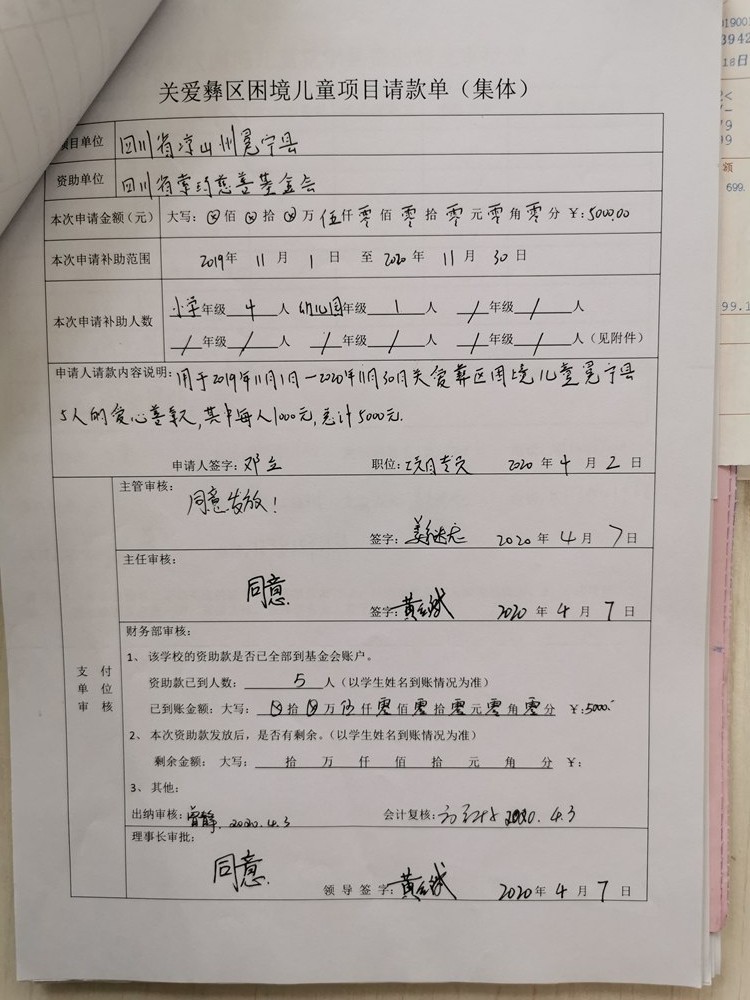 关爱彝区困境儿童项目请款单（集体）
项目单位 四川省凉山州冕宁县
资助单位 四川省索玛慈善基金会
本次申请金额（元） 大写：⊗佰⊗拾⊗万伍仟零佰零拾零元零角零分 ¥：5000.00
本次申请补助范围 2019年11月1日至2020年11月30日
本次申请补助人数 小学年级4人 幼儿园年级1人 /年级/人
/年级/人 /年级/人 /年级/人（见附件）
申请人请款内容说明：用于2019年11月1日—2020年11月30日关爱彝区困境儿童冕宁县
5人的爱心善款，其中每人1000元，总计5000元.
申请人签字：邓立 职位：项目专员 2020年4月2日
支付单位审核
主管审核：
同意发放！
签字： 2020年4月7日
主任审核：
同意.
签字： 2020年4月7日
财务部审核：
1、该学校的资助款是否已全部到基金会账户。
资助款已到人数：5人（以学生姓名到账情况为准）
已到账金额：大写：⊗拾⊗万伍仟零佰零拾零元零角零分 ¥：5000.-
2、本次资助款发放后，是否有剩余。（以学生姓名到账情况为准）
剩余金额：大写： 拾 万 仟 佰 拾 元 角 分 ¥：
3、其他：
出纳审核：曾静. 2020.4.3 会计复核： 2020.4.3
理事长审批：
同意.
领导签字： 2020年4月7日
699.
99.1